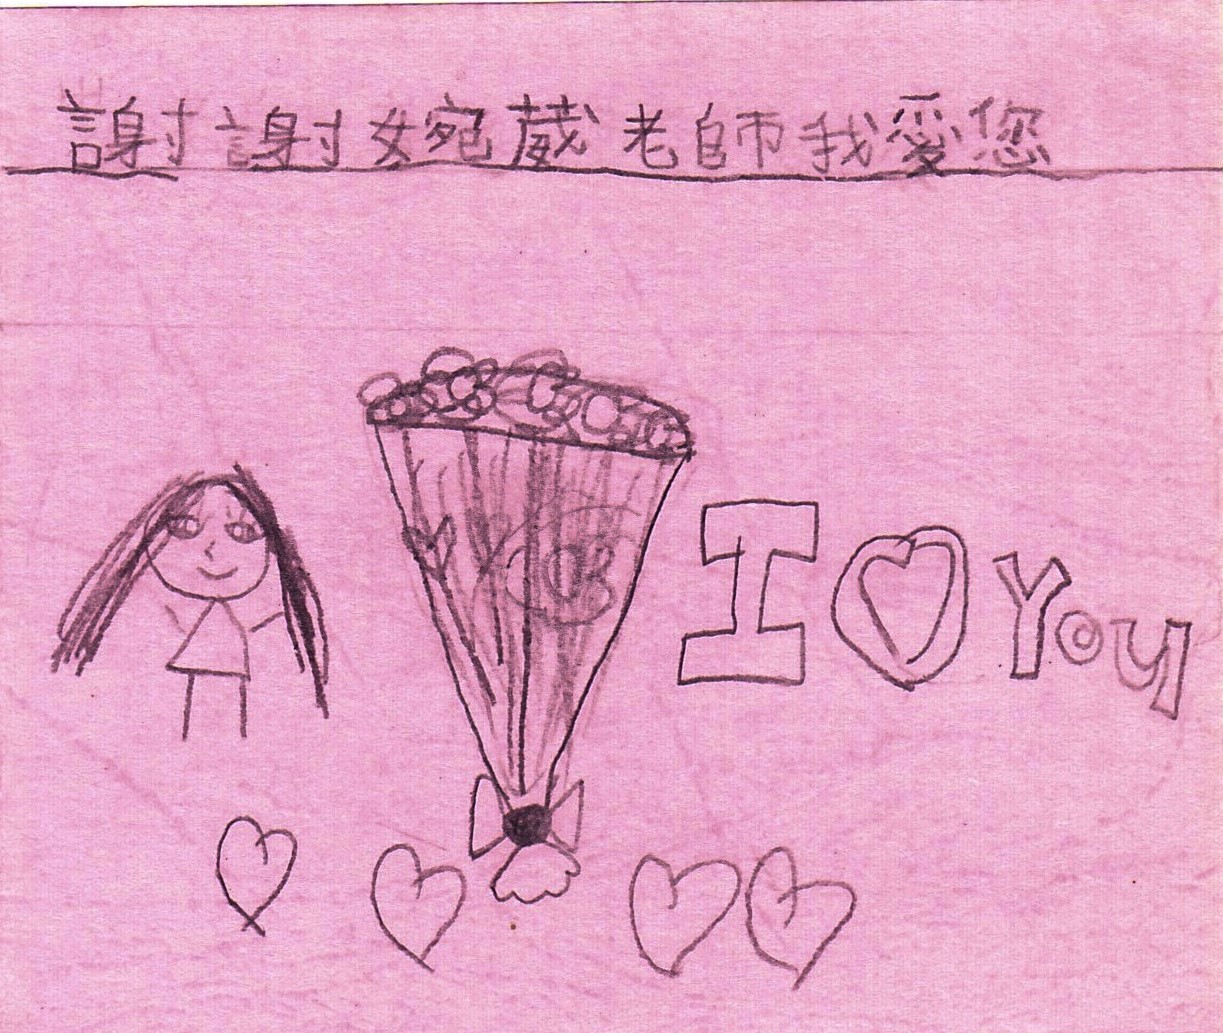 謝謝婉葳老師我愛您
I ♡ You